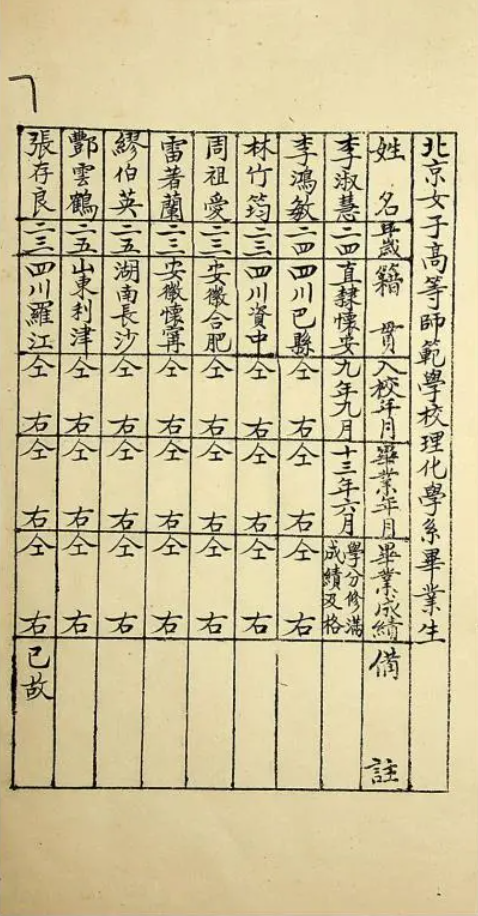 北京女子高等師範學校理化學系畢業生
姓名 年歲 籍貫 入校年月 畢業年月 畢業成績 備註
李淑慧 二四 直隸懷安 九年九月 十三年六月 學分修滿成績及格
李鴻敏 二四 四川巴縣 仝右 仝右 仝右
林竹筠 二三 四川資中 仝右 仝右 仝右
周祖愛 二三 安徽合肥 仝右 仝右 仝右
雷著蘭 二三 安徽懷甯 仝右 仝右 仝右
繆伯英 二五 湖南長沙 仝右 仝右 仝右
酆雲鶴 二五 山東利津 仝右 仝右 仝右
張存良 二三 四川羅江 仝右 仝右 仝右 已故